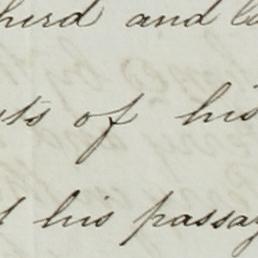 third and la
ts of his
his passag